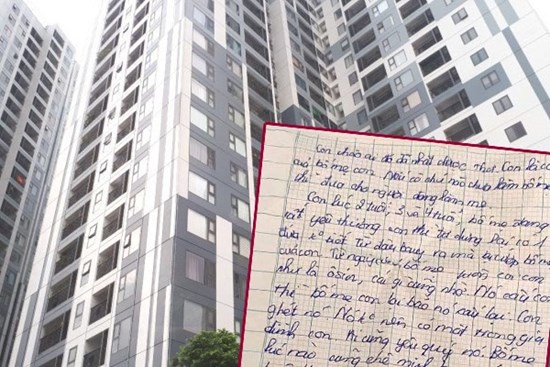 Con chào ai đó đã nhặt được thư. Con là con
của bố mẹ con. Nếu cô chú nào chưa làm bố mẹ
thì đưa cho người đang làm mẹ
Con lúc 2 tuổi, 3 và 4 tuổi, bố mẹ đang
rất yêu thương con thì tự dưng lại có 1
đứa ở đâu bay ra mà bị cướp bố mẹ
của con. Từ ngày đó bố mẹ con coi con
như là ôsin, cái gì cũng nhờ. Nó cấu con
thế bố mẹ con lại bảo nó cấu lại. Con
ghét nó. Nó ko nên có mặt trong gia
đình con. Ai cũng yêu quý nó. Bố mẹ
lúc nào cũng chê mình